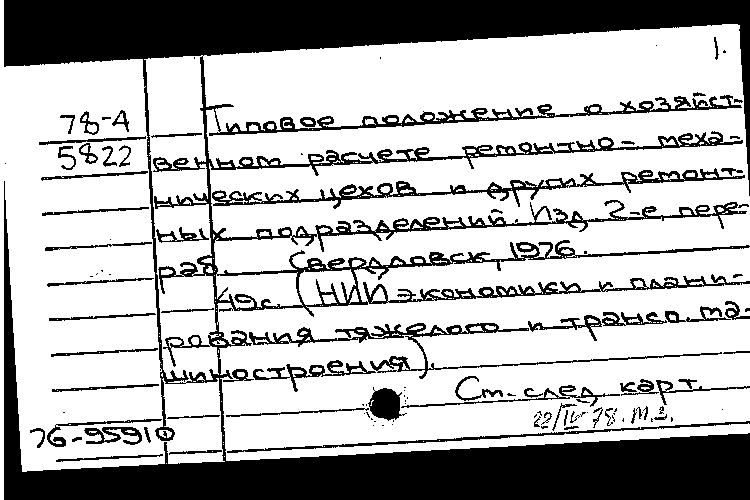 1.
78-А Типовое положение о хозяйст-
5822 венном расчете ремонтно-меха-
нических цехов и других ремонт-
ных подразделений. Изд. 2-е, пере-
раб. Свердловск, 1976.
49с. (НИИ экономики и плани-
рования тяжелого и трансп. ма-
шиностроения).
См. след. карт.
22/IV-78. М.З.
76-95910